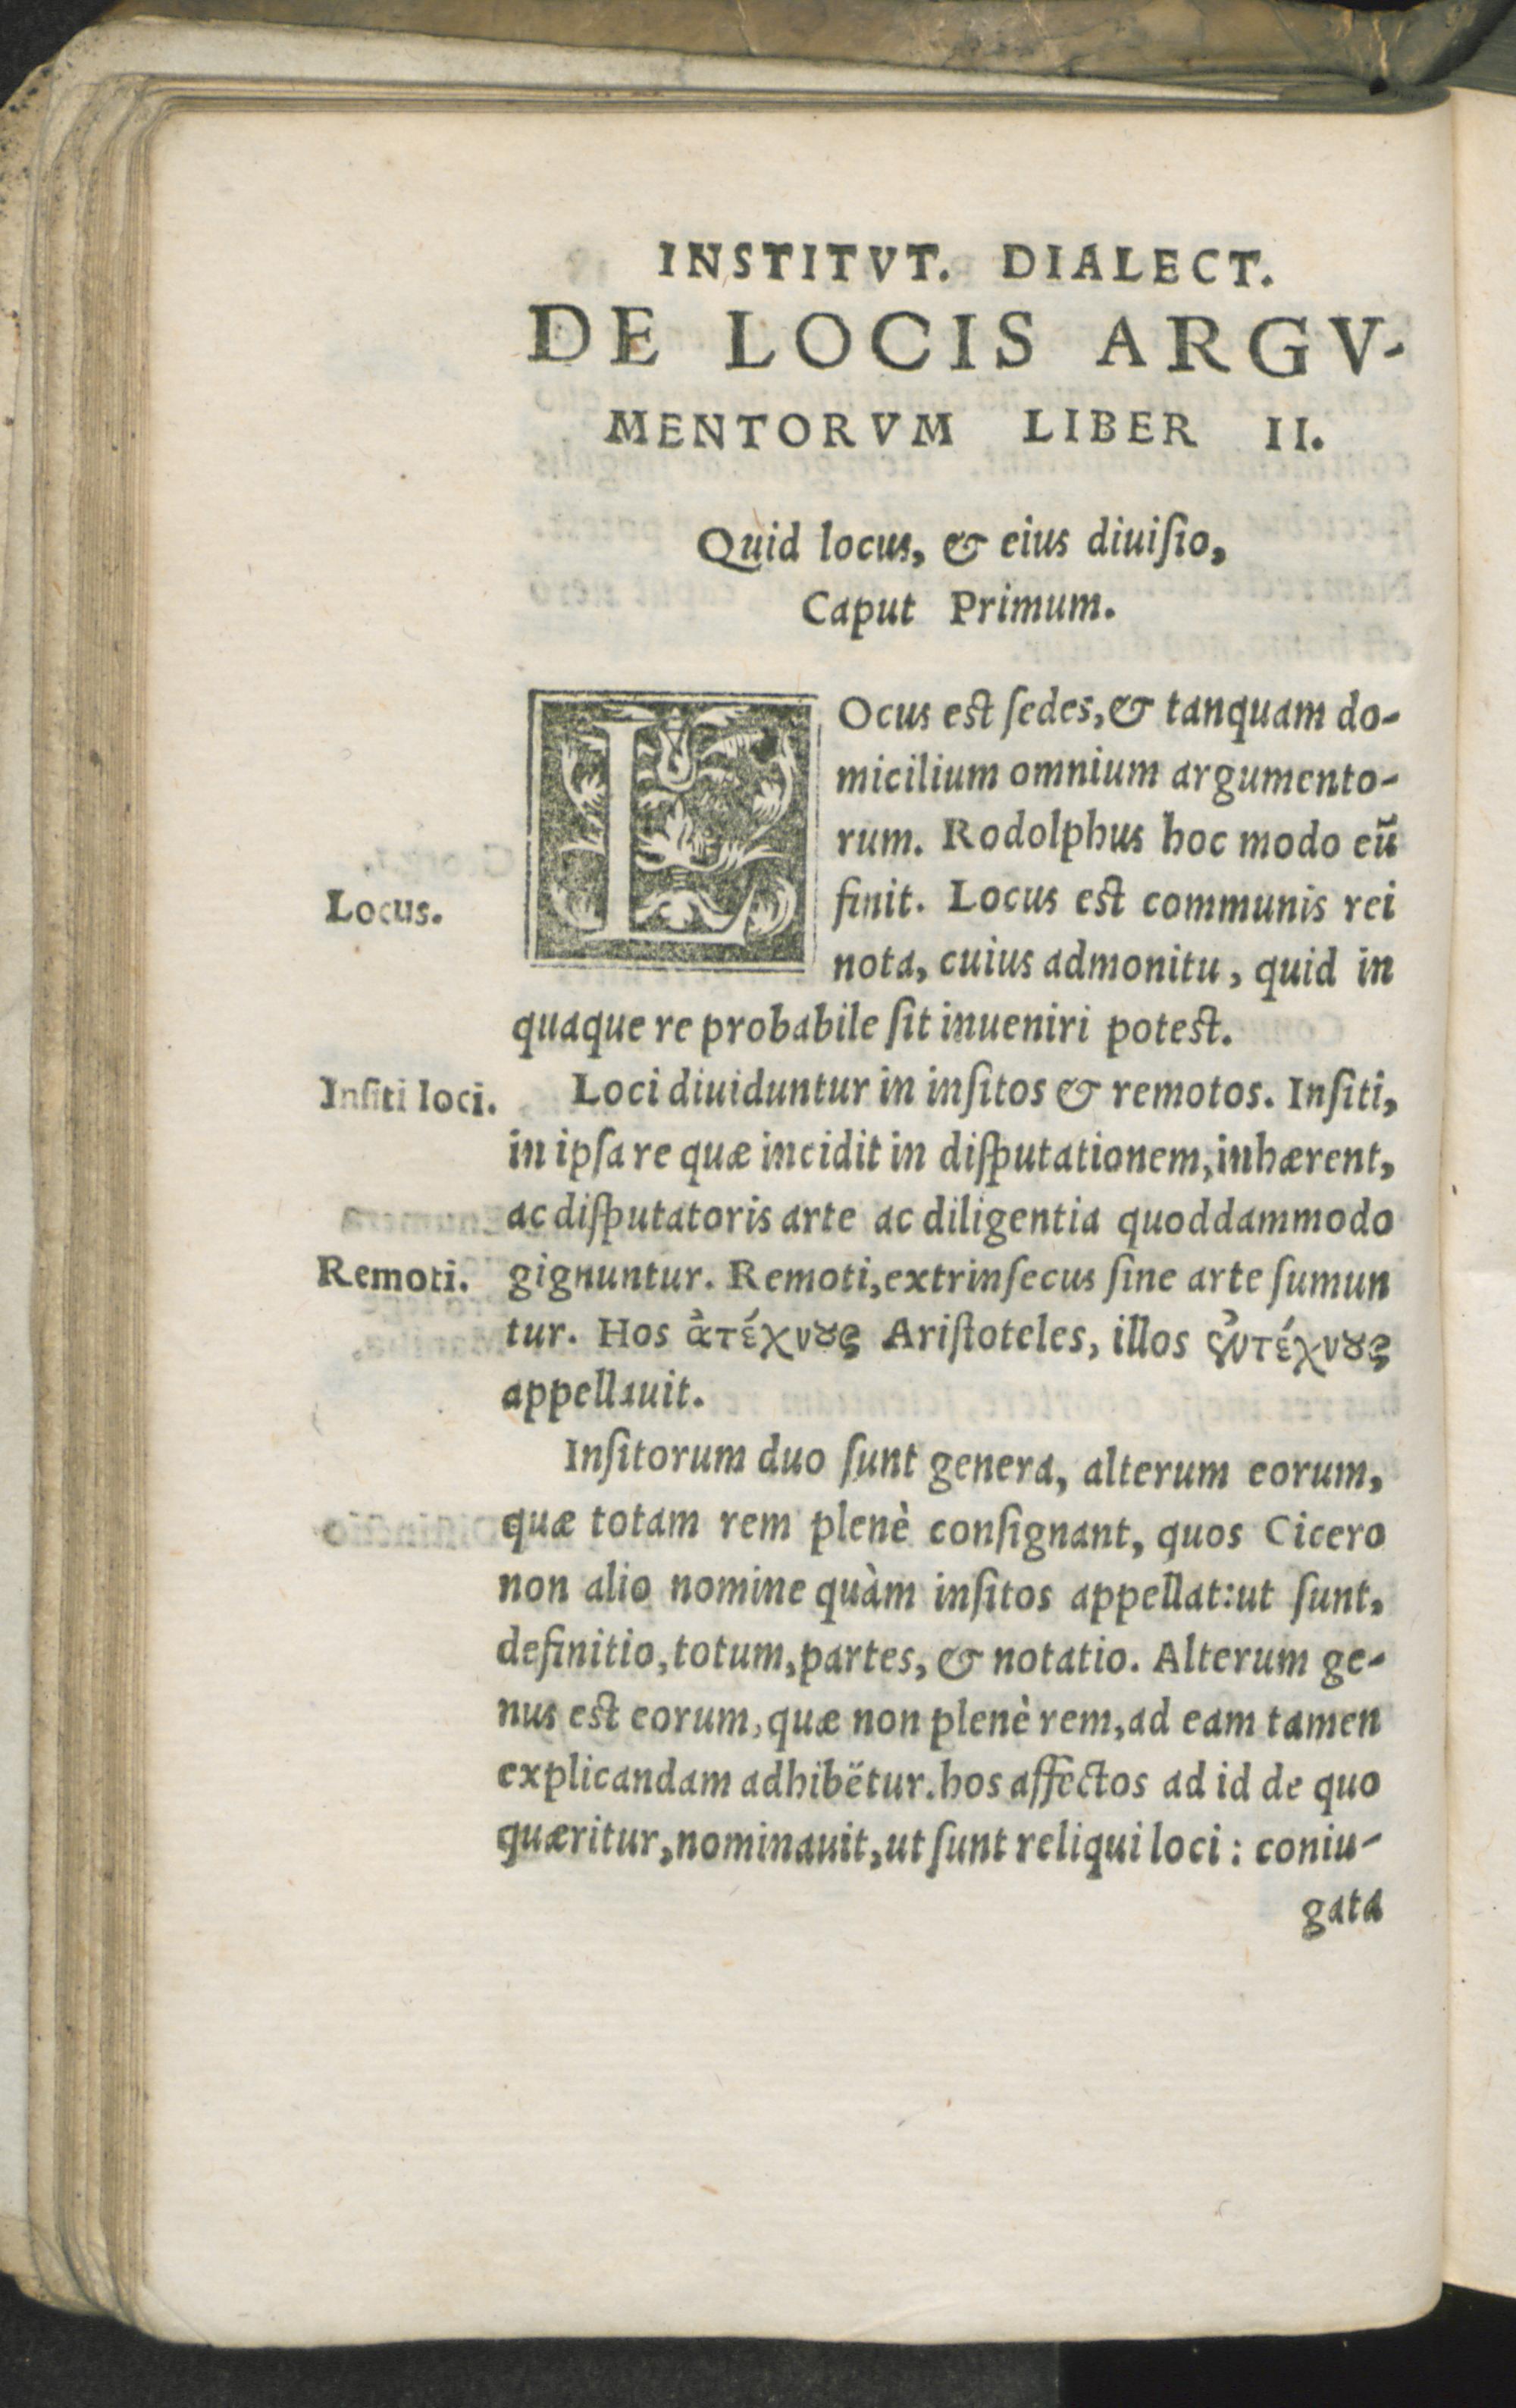 INSTITVT. DIALECT.
DE LOCIS ARGV-
MENTORVM LIBER II.
Quid locus, & eius diuiſio,
Caput Primum.
LOcus est ſedes, & tanquam do-
micilium omnium argumento-
rum. Rodolphus hoc modo eū
Locus.
finit. Locus est communis rei
nota, cuius admonitu, quid in
quaque re probabile ſit inueniri potest.
Inſiti loci.
Loci diuiduntur in inſitos & remotos. Inſiti,
in ipſa re quæ incidit in diſputationem, inhærent,
ac diſputatoris arte ac diligentia quoddammodo
Remoti.
gignuntur. Remoti, extrinſecus ſine arte ſumun
tur. Hos ἀτέχνȣς Ariſtoteles, illos ἐντέχνȣς
appellauit.
Inſitorum duo ſunt genera, alterum eorum,
quæ totam rem plenè conſignant, quos Cicero
non alio nomine quàm inſitos appellat: ut ſunt,
definitio, totum, partes, & notatio. Alterum ge-
nus est eorum, quæ non plenè rem, ad eam tamen
explicandam adhibētur. hos affectos ad id de quo
quæritur, nominauit, ut ſunt reliqui loci: coniu-
gata